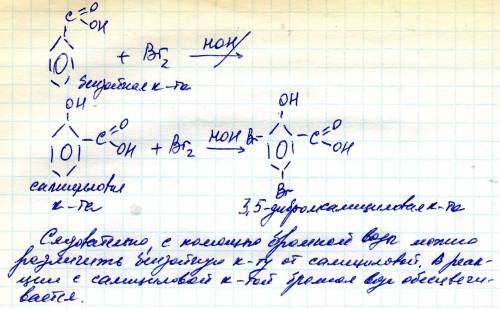 C=O
OH
+ Br₂ HOH
бензойная к-та
OH
C=O
OH
+ Br₂ HOH
OH
Br
C=O
OH
Br
салициловая
к-та
3,5-дибромсалициловая к-та
Следовательно, с помощью бромной воды можно
различить бензойную к-ту от салициловой. В реак-
ции с салициловой к-той бромная вода обесцвечи-
вается.